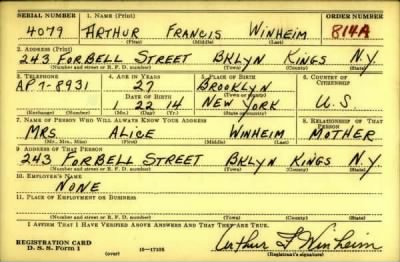 SERIAL NUMBER 1. NAME (Print) ORDER NUMBER
4079 ARTHUR FRANCIS WINHEIM 814A
(First) (Middle) (Last)
2. ADDRESS (Print)
243 FORBELL STREET BKLYN KINGS N.Y.
(Number and street or R. F. D. number) (Town) (County) (State)
3. TELEPHONE 4. AGE IN YEARS 5. PLACE OF BIRTH 6. COUNTRY OF CITIZENSHIP
AP7-8931 27 BROOKLYN
DATE OF BIRTH (Town) (County)
1 22 14 NEW YORK U.S.
(Exchange) (Number) (Mo.) (Day) (Yr.) (State or country)
7. NAME OF PERSON WHO WILL ALWAYS KNOW YOUR ADDRESS 8. RELATIONSHIP OF THAT PERSON
MRS. ALICE WINHEIM MOTHER
(Mr., Mrs., Miss) (First) (Middle) (Last)
9. ADDRESS OF THAT PERSON
243 FORBELL STREET BKLYN KINGS N.Y.
(Number and street or R. F. D. number) (Town) (County) (State)
10. EMPLOYER'S NAME
NONE
11. PLACE OF EMPLOYMENT OR BUSINESS
(Number and street or R. F. D. number) (Town) (County) (State)
I AFFIRM THAT I HAVE VERIFIED ABOVE ANSWERS AND THAT THEY ARE TRUE.
REGISTRATION CARD
D. S. S. Form 1 (over) Arthur F Winheim
(Registrant's signature)